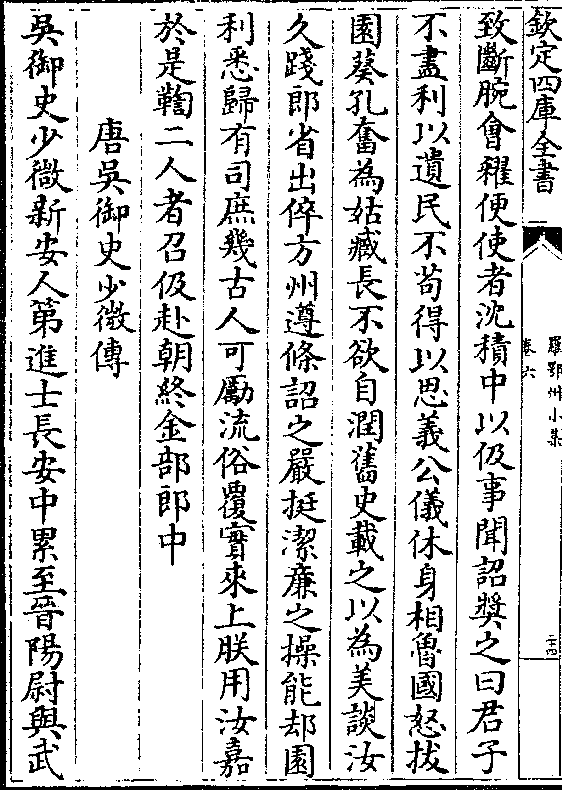 欽定四庫全書
羅鄂州小集
卷六
二十四
致斷腕會糴便使者沈積中以伋事聞詔獎之曰君子
不盡利以遺民不苟得以思義公儀休身相魯國怒拔
園葵孔奮為姑臧長不欲自潤舊史載之以為美談汝
久踐郎省出倅方州遵條詔之嚴挺潔亷之操能却園
利悉歸有司庶幾古人可勵流俗覆實來上朕用汝嘉
於是鞫二人者召伋赴朝終金部郎中
唐吳御史少微傳
吳御史少微新安人第進士長安中累至晉陽尉與武